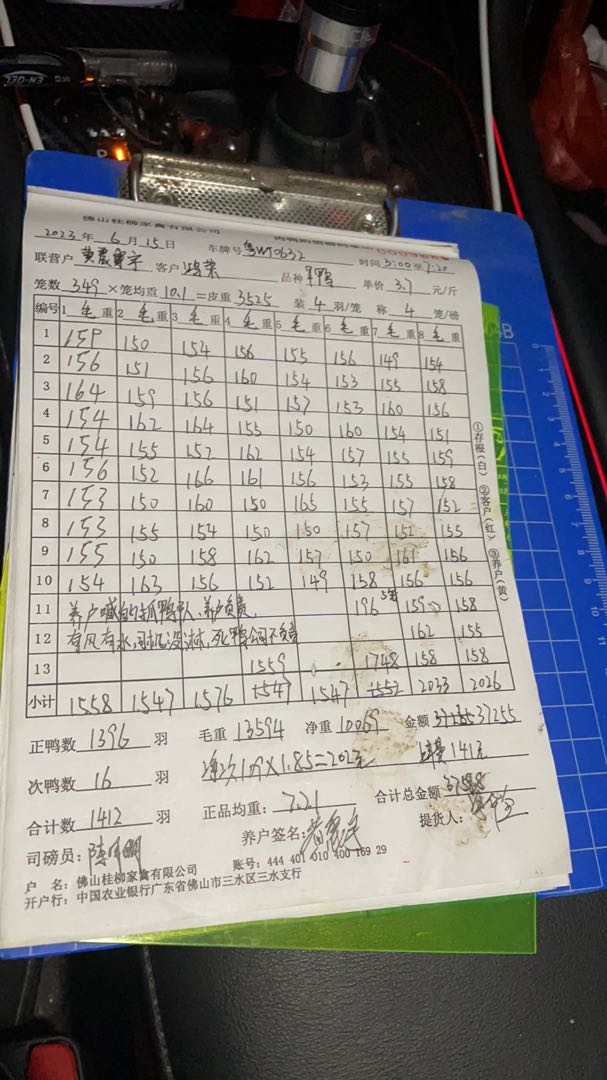 佛山桂柳家禽有限公司
2023年 6月15日 车牌号 粤W10632 时间 5:00至7:20
联营户 客户 鸿荣 品种 单价 3.7 元/斤
笼数 349 ×笼均重 10.1 =皮重 3525 装 4 羽/笼 称 4 笼/磅
编号 1 毛重 2 毛重 3 毛重 4 毛重 5 毛重 6 毛重 7 毛重 8 毛重
1 159 150 154 156 155 156 149 154
2 156 151 156 160 154 153 155 158
3 164 159 156 151 157 153 160 156
4 154 162 164 155 150 160 154 151
5 154 155 157 162 154 157 155 159
6 156 152 166 161 156 153 155 158
7 153 150 160 150 165 155 157 152
8 153 155 154 150 150 157 152 155
9 155 150 158 162 157 150 161 156
10 154 163 156 152 149 158 156 156
11 养户喊的抓鸭队、养户负责 196 5笼 159 158
12 有风有水,司机没淋,死鸭合同不负责 162 155
13 1559 1748 158 158
小计 1558 1547 1576 1547 1547 1552 2033 2026
正鸭数 1396 羽 毛重 13594 净重 10069 金额 37255
次鸭数 16 羽 ×1.85=202元 141元
合计数 1412 羽 正品均重: 7.21 合计总金额
司磅员: 养户签名: 提货人:
户 名: 佛山桂柳家禽有限公司 账号: 444 401 010 400 169 29
开户行: 中国农业银行广东省佛山市三水区三水支行
①存根(白) ②客户(红) ③养户(黄)